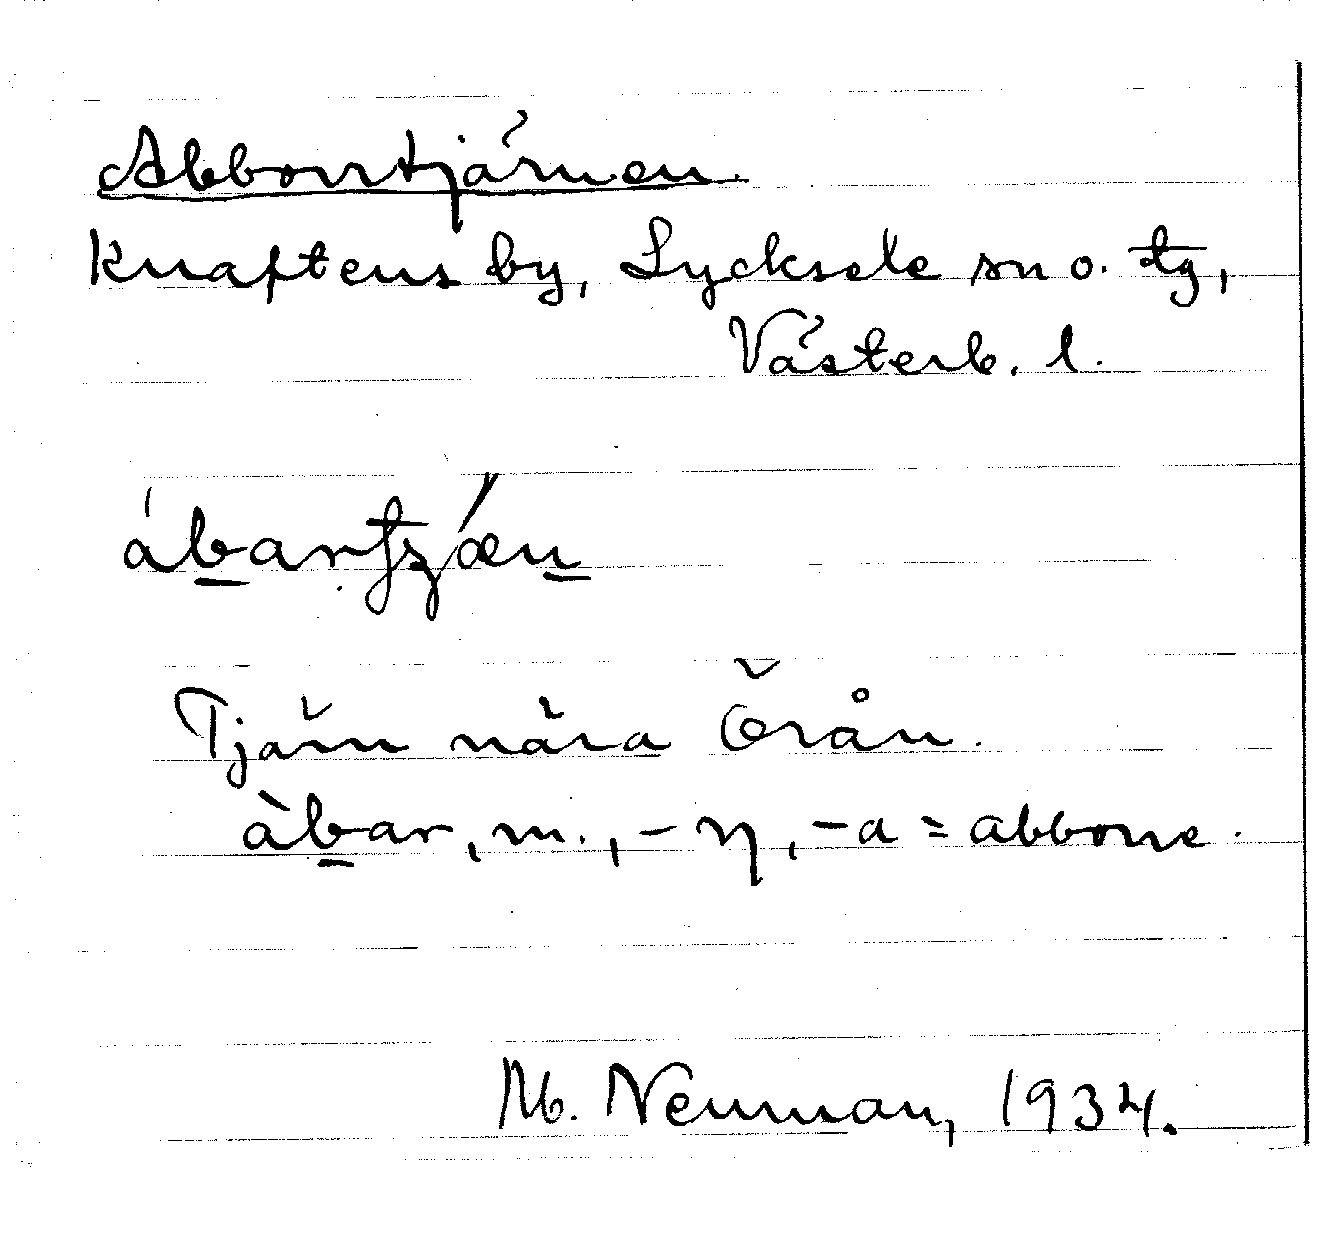 Abborrtjärnen.
Knaftens by, Lycksele sn o. tg,
Västerb. l.
Tjärn nära Örån.
àbar, m., -η, -a = abborre.
M. Neuman, 1934.